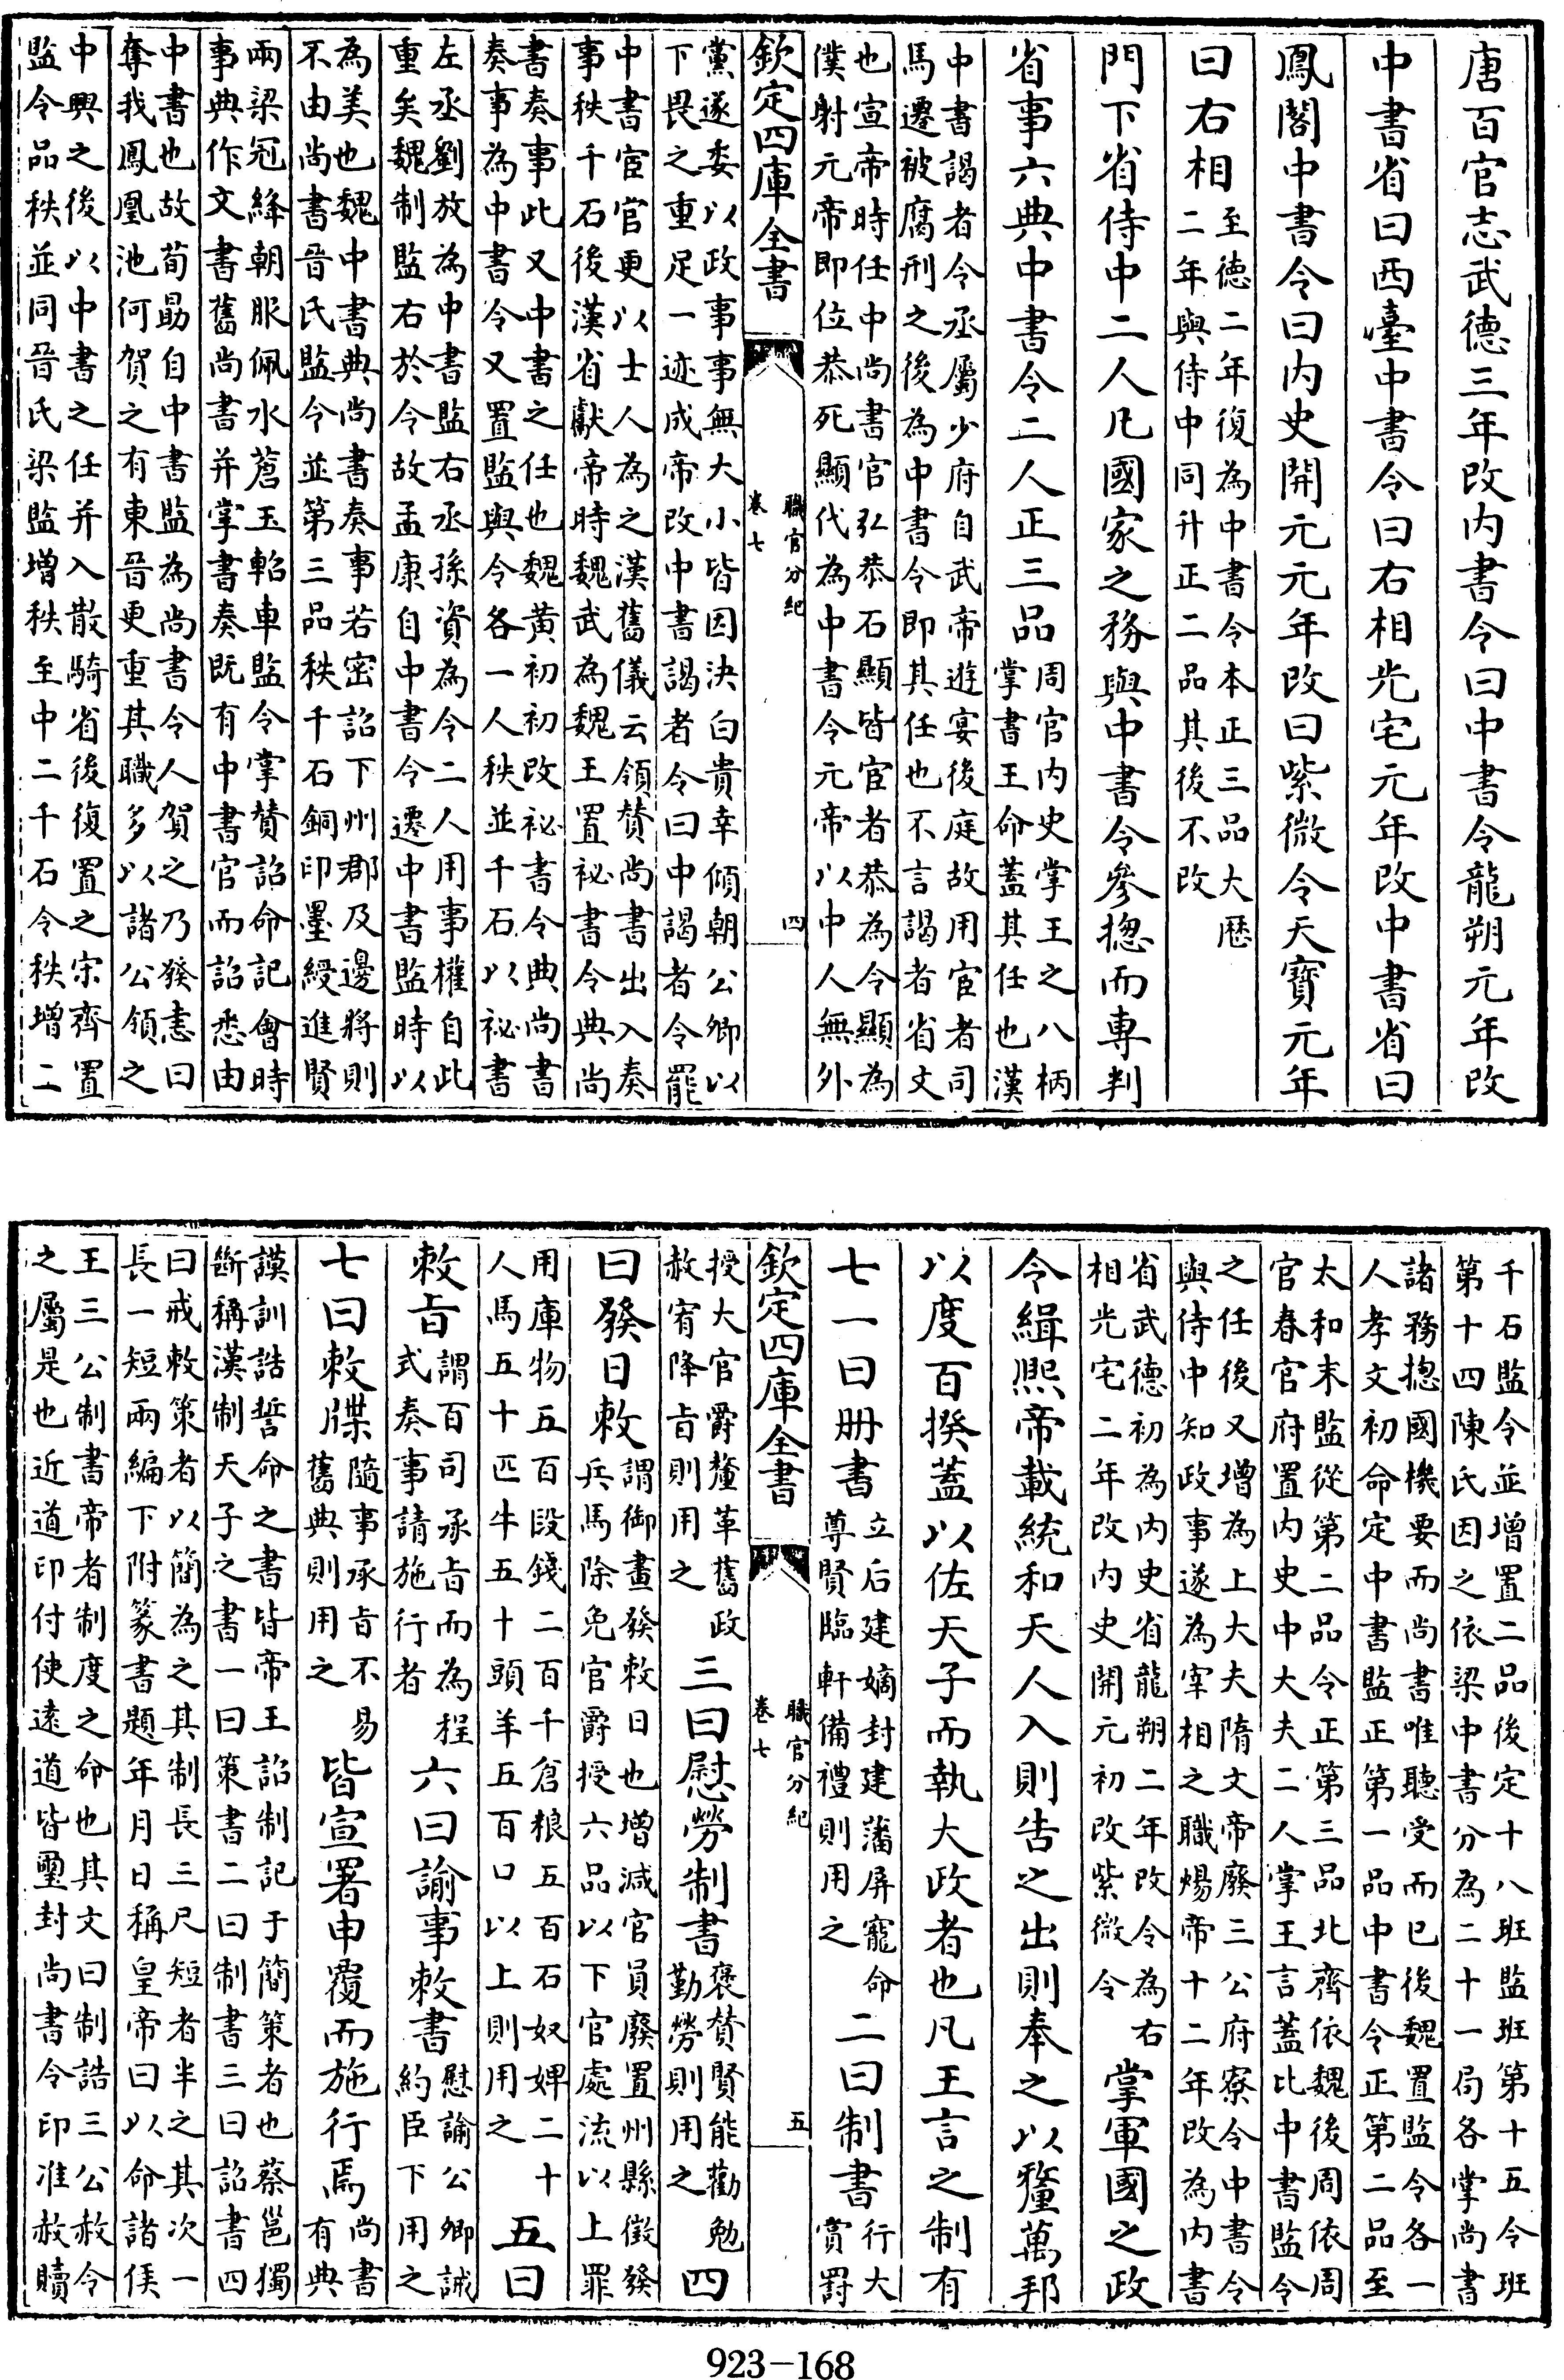 唐百官志武德三年改内書令曰中書令龍朔元年改
中書省曰西臺中書令曰右相光宅元年改中書省曰
鳳閣中書令曰内史開元元年改曰紫微令天寶元年
曰右相
至德二年復為中書令本正三品大厯
二年與侍中同升正二品其後不改
門下省侍中二人凡國家之務與中書令參揔而專判
省事六典中書令二人正三品
周官内史掌王之八柄
掌書王命蓋其任也漢
中書謁者令丞屬少府自武帝遊宴後庭故用宦者司
馬遷被腐刑之後為中書令即其任也不言謁者省文
也宣帝時任中尚書官弘恭石顯皆宦者恭為令顯為
僕射元帝即位恭死顯代為中書令元帝以中人無外
欽定四庫全書
職官分紀
卷七
四
黨遂委以政事事無大小皆因決白貴幸傾朝公卿以
下畏之重足一迹成帝改中書謁者令曰中謁者令罷
中書宦官更以士人為之漢舊儀云領贊尚書出入奏
事秩千石後漢省獻帝時魏武為魏王置祕書令典尚
書奏事此又中書之任也魏黄初初改祕書令典尚書
奏事為中書令又置監與令各一人秩並千石以祕書
左丞劉放為中書監右丞孫資為令二人用事權自此
重矣魏制監右於令故孟康自中書令遷中書監時以
為美也魏中書典尚書奏事若密詔下州郡及邊將則
不由尚書晉氏監令並第三品秩千石銅印墨綬進賢
兩梁冠絳朝服佩水蒼玉軺車監令掌贊詔命記會時
事典作文書舊尚書并掌書奏既有中書官而詔悉由
中書也故荀勗自中書監為尚書令人賀之乃發恚曰
奪我鳳凰池何賀之有東晉更重其職多以諸公領之
中興之後以中書之任并入散騎省後復置之宋齊置
監令品秩並同晉氏梁監增秩至中二千石令秩增二
千石監令並增置二品後定十八班監班第十五令班
第十四陳氏因之依梁中書分為二十一局各掌尚書
諸務揔國機要而尚書唯聽受而已後魏置監令各一
人孝文初命定中書監正第一品中書令正第二品至
太和末監從第二品令正第三品北齊依魏後周依周
官春官府置内史中大夫二人掌王言蓋比中書監令
之任後又增為上大夫隋文帝廢三公府寮令中書令
與侍中知政事遂為宰相之職煬帝十二年改為内書
省武德初為内史省龍朔二年改令為右
相光宅二年改内史開元初改紫微令
掌軍國之政
令緝熙帝載統和天人入則告之出則奉之以釐萬邦
以度百揆蓋以佐天子而執大政者也凡王言之制有
七一曰册書
立后建嫡封建藩屏寵命
尊賢臨軒備禮則用之
二曰制書
行大
賞罰
欽定四庫全書
職官分紀
卷七
五
授大官爵釐革舊政
赦宥降㫖則用之
三曰慰勞制書
褒賛賢能勸勉
勤勞則用之
四
曰發日敕
謂御畫發敕日也增減官員廢置州縣徵發
兵馬除免官爵授六品以下官處流以上罪
用庫物五百段錢二百千倉粮五百石奴婢二十
人馬五十匹牛五十頭羊五百口以上則用之
五曰
敕㫖
謂百司承㫖而為程
式奏事請施行者
六曰諭事敕書
慰諭公卿誡
約臣下用之
七曰敕牒
隨事承㫖不易
舊典則用之
皆宣署申覆而施行焉
尚書
有典
謨訓誥誓命之書皆帝王詔制記于簡策者也蔡邕獨
斷稱漢制天子之書一曰策書二曰制書三曰詔書四
曰戒敕策者以簡為之其制長三尺短者半之其次一
長一短兩編下附篆書題年月日稱皇帝曰以命諸侯
王三公制書帝者制度之命也其文曰制誥三公赦令
之屬是也近道印付使遠道皆璽封尚書令印准赦贖
923-168